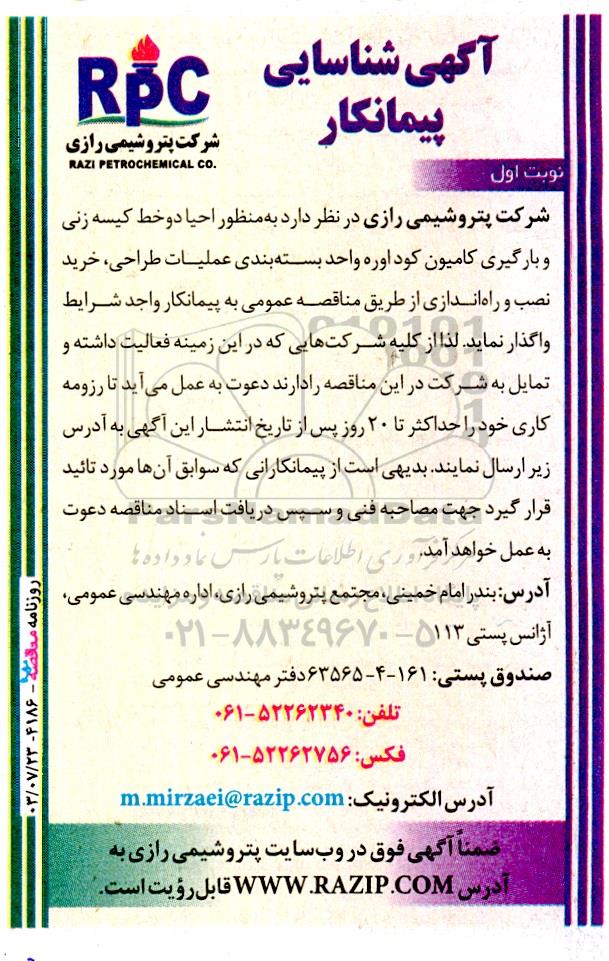 آگهی شناسایی
پیمانکار
RPC
شرکت پتروشیمی رازی
RAZI PETROCHEMICAL CO.
نوبت اول
شرکت پتروشیمی رازی در نظر دارد به‌منظور احیا دوخط کیسه زنی
و بارگیری کامیون کود اوره واحد بسته‌بندی عملیات طراحی، خرید
نصب و راه‌اندازی از طریق مناقصه عمومی به پیمانکار واجد شرایط
واگذار نماید. لذا از کلیه شرکت‌هایی که در این زمینه فعالیت داشته و
تمایل به شرکت در این مناقصه را دارند دعوت به عمل می‌آید تا رزومه
کاری خود را حداکثر تا ۲۰ روز پس از تاریخ انتشار این آگهی به آدرس
زیر ارسال نمایند. بدیهی است از پیمانکارانی که سوابق آن‌ها مورد تائید
قرار گیرد جهت مصاحبه فنی و سپس دریافت اسناد مناقصه دعوت
به عمل خواهد آمد.
آدرس: بندر امام خمینی، مجتمع پتروشیمی رازی، اداره مهندسی عمومی،
آژانس پستی ۱۱۳
صندوق پستی: ۱۶۱-۴-۶۳۵۶۵ دفتر مهندسی عمومی
تلفن: ۵۲۲۶۲۳۴۰-۰۶۱
فکس: ۵۲۲۶۲۷۵۶-۰۶۱
آدرس الکترونیک: m.mirzaei@razip.com
ضمناً آگهی فوق در وب‌سایت پتروشیمی رازی به
آدرس WWW.RAZIP.COM قابل رؤیت است.
روزنامه مناقصه - ۴۱۸۶ - ۰۳/۰۷/۲۳
ParsNamadData
مرکز فرآوری اطلاعات پارس نماد داده‌ها
۰۲۱-۸۸۳۴۹۶۷۰-۵